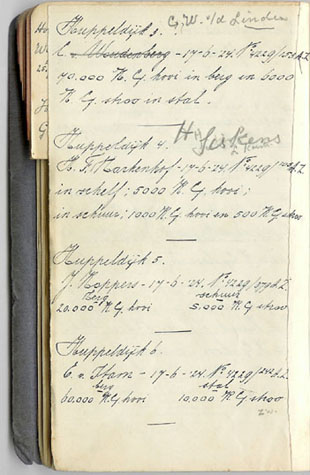 Huppeldijk 3. G. W. v/d Linden
C. v. Woudenberg - 17-6-24. Nº 4229/ d.Z.
40.000 K.G. hooi in berg en 6000
K.G. stroo in stal.
Huppeldijk 4. H. Liskens
H. F. Markenhof - 17-6-24. Nº 4229/ d.Z.
in schelf: 5000 K.G. hooi;
in schuur: 1000 K.G. hooi en 500 K.G. stroo
Huppeldijk 5.
J. Koppers - 17-6-24. Nº 4229/ d.Z.
Berg schuur
20.000 K.G. hooi 5.000 K.G. stroo
Huppeldijk 6.
E. v. Ham - 17-6-24. Nº 4229/ d.Z.
berg stal
60.000 K.G. hooi 10.000 K.G. stroo